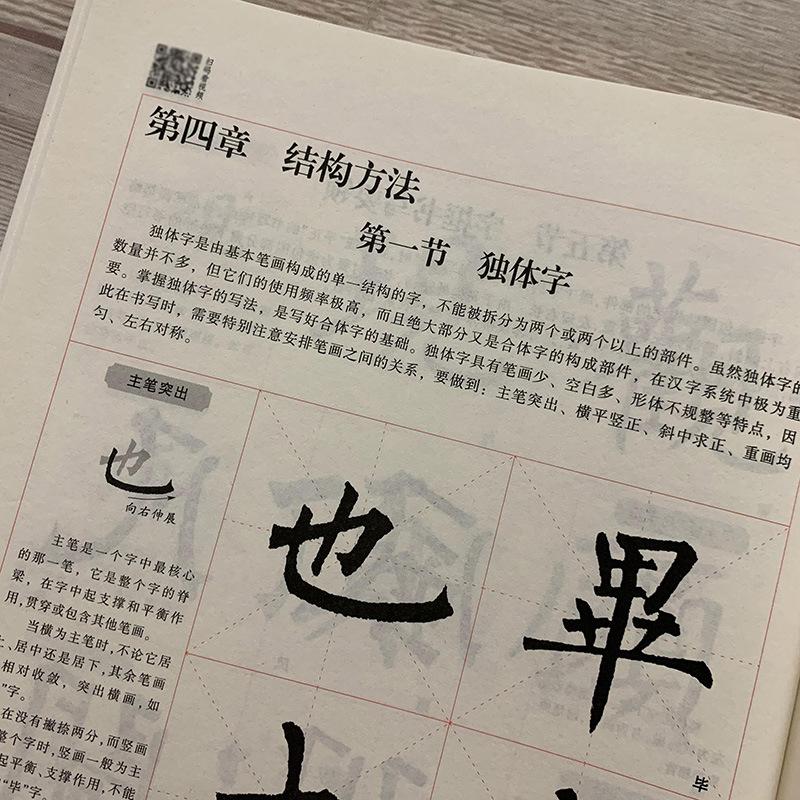 扫码看视频
第四章 结构方法
第一节 独体字
独体字是由基本笔画构成的单一结构的字，不能被拆分为两个或两个以上的部件。虽然独体字的
数量并不多，但它们的使用频率极高，而且绝大部分又是合体字的构成部件，在汉字系统中极为重
要。掌握独体字的写法，是写好合体字的基础。独体字具有笔画少、空白多、形体不规整等特点，因
此在书写时，需要特别注意安排笔画之间的关系，要做到：主笔突出、横平竖正、斜中求正、重画均
匀、左右对称。
主笔突出
也
向右伸展
主笔是一个字中最核心
的那一笔，它是整个字的脊
梁，在字中起支撑和平衡作
用，贯穿或包含其他笔画。
当横为主笔时，不论它居
上、居中还是居下，其余笔画
相对收敛，突出横画，如
"字。
在没有撇捺两分，而竖画
整个字时，竖画一般为主
起平衡、支撑作用，不能
"毕"字。
也
畢
毕